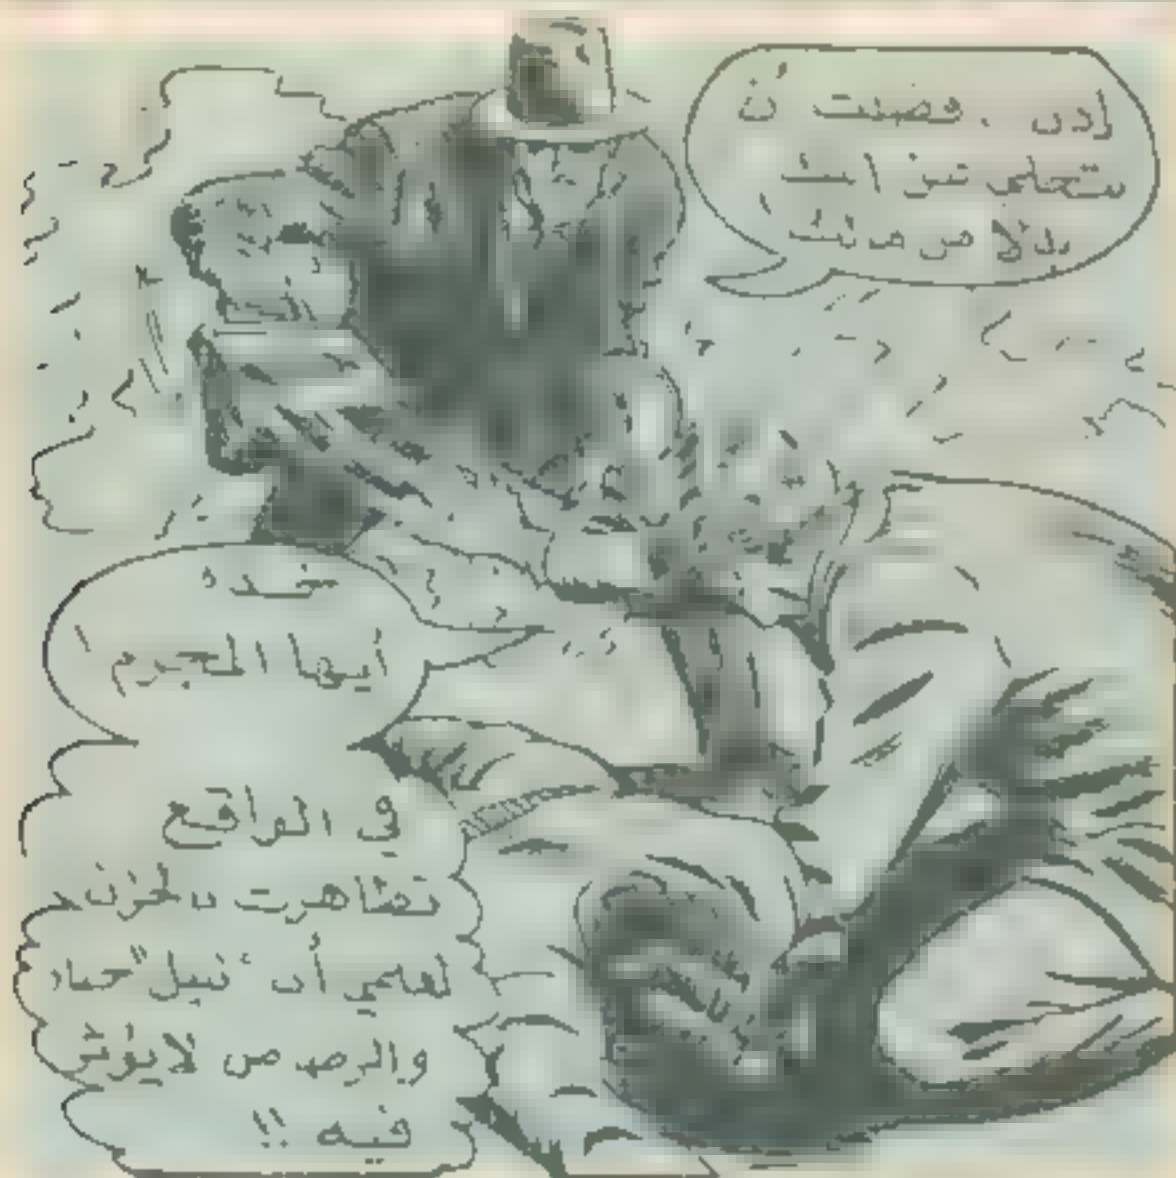 إذن . فضلت أن
تتحملي
بدلا من
خذه
أيها المجرم !
في الواقع
تظاهرت بالحزن
لعلمي أن "نبيل" جماد
والرصاص لا يؤثر
فيه !!